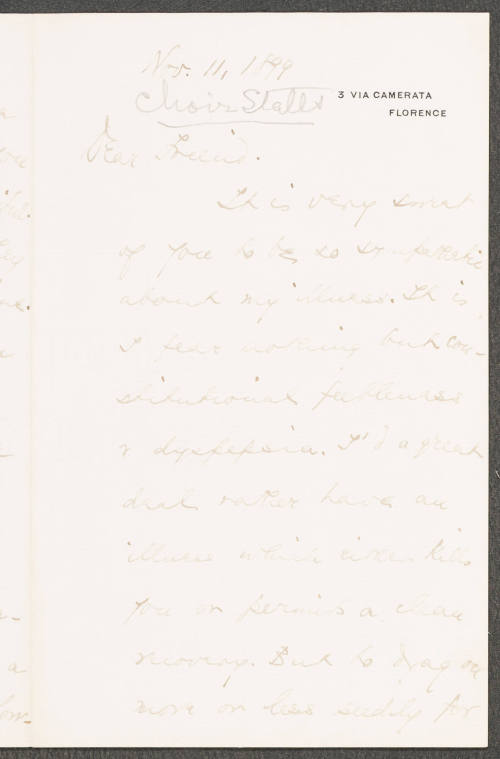 Nov. 11, 1899
Choir Stalls
3 VIA CAMERATA
FLORENCE
Dear Friend.
It is very sweet
of you to be so sympathetic
about my illness. It is,
I fear nothing but con-
stitutional feebleness
& dyspepsia. I'd a great
deal rather have an
illness which either kills
you or permits a clean
recovery. But to drag on
more or less seedily for